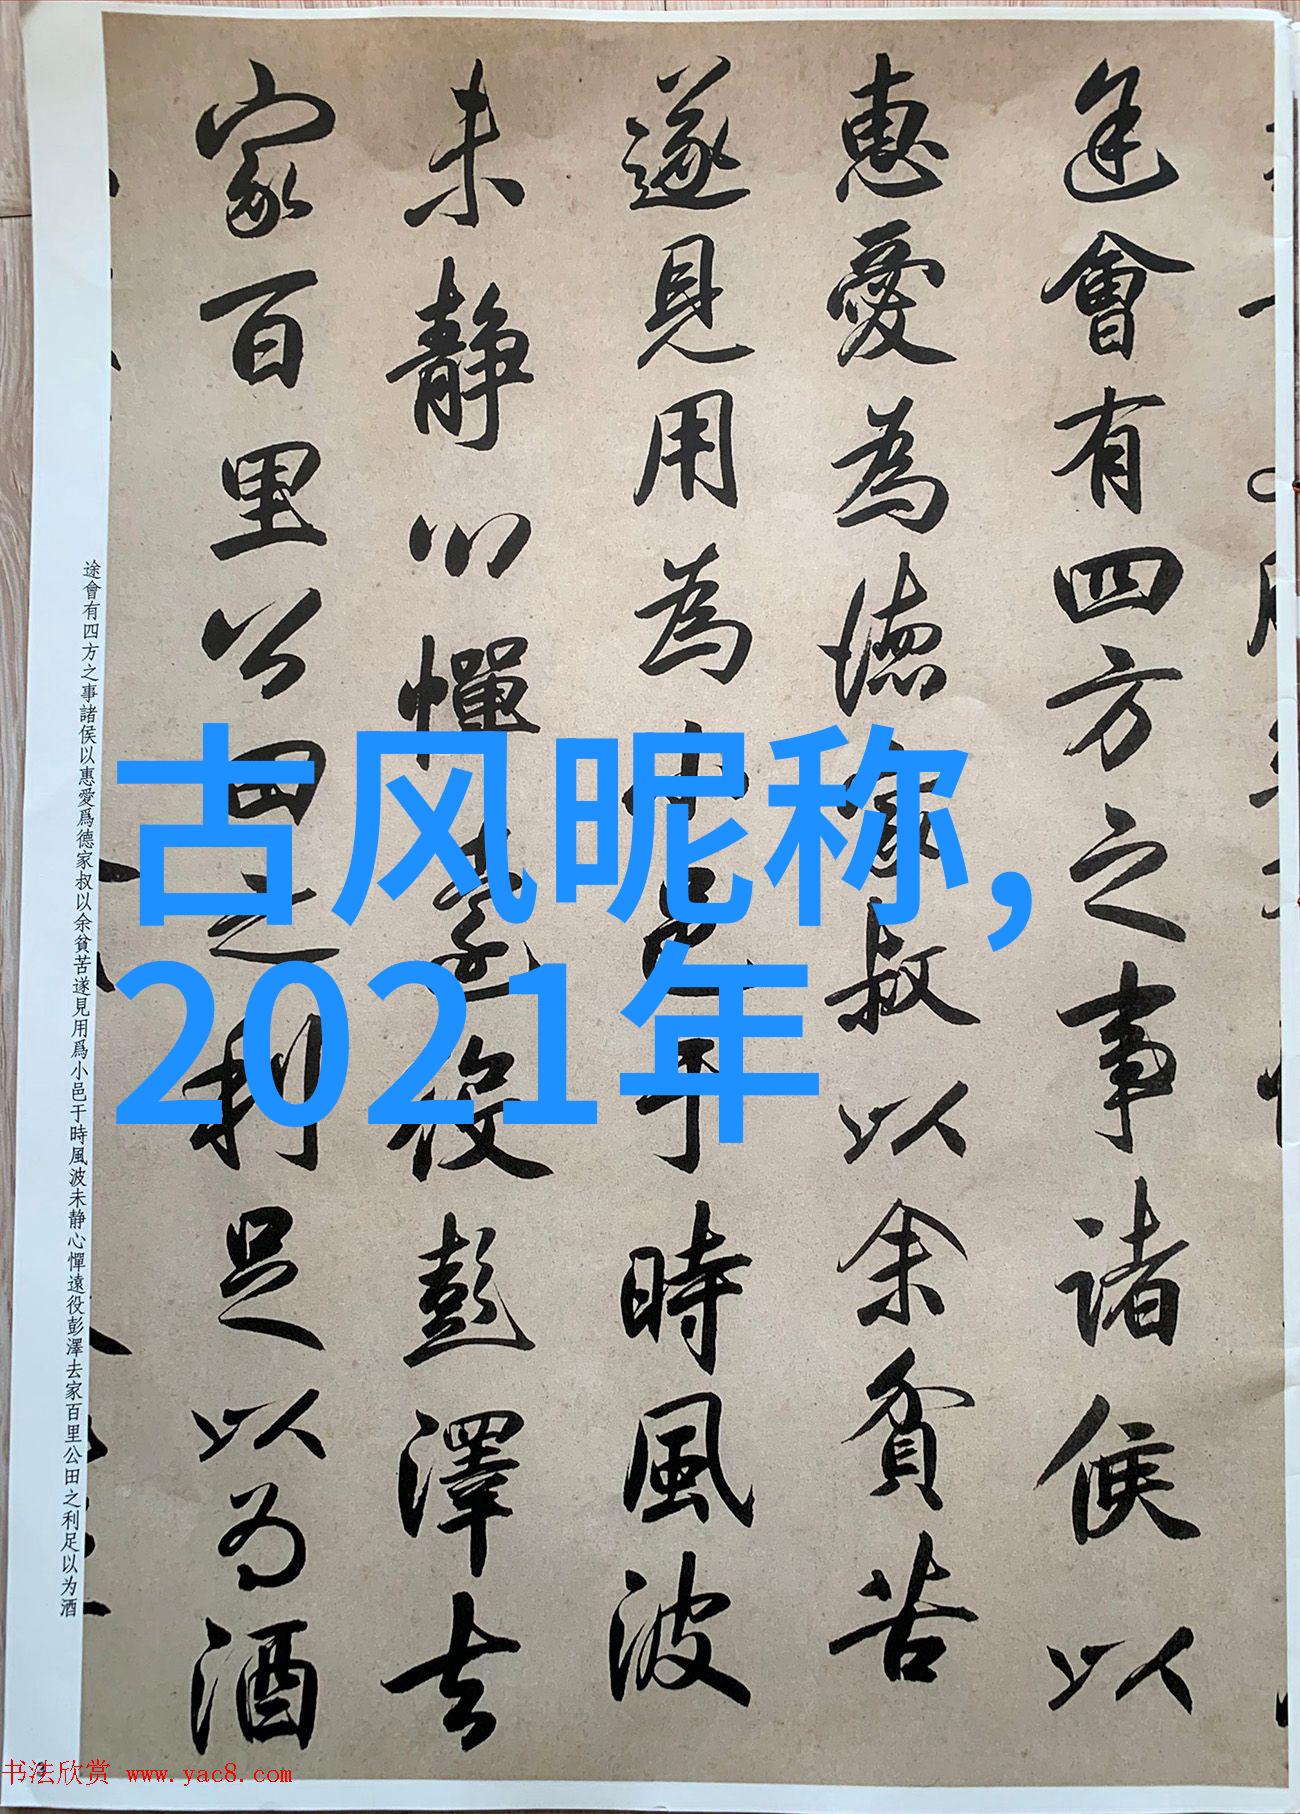 途會有四方之事諸侯以
惠愛為德家叔以余貧苦
遂見用為小邑于時風波
未静心憚遠役彭澤去
家百里公田之利足以為酒
途會有四方之事諸侯以惠愛爲德家叔以余貧苦遂見用爲小邑于時風波未静心憚遠役彭澤去家百里公田之利足以为酒
古风昵称,
2021年
书法欣赏 www.yac8.com